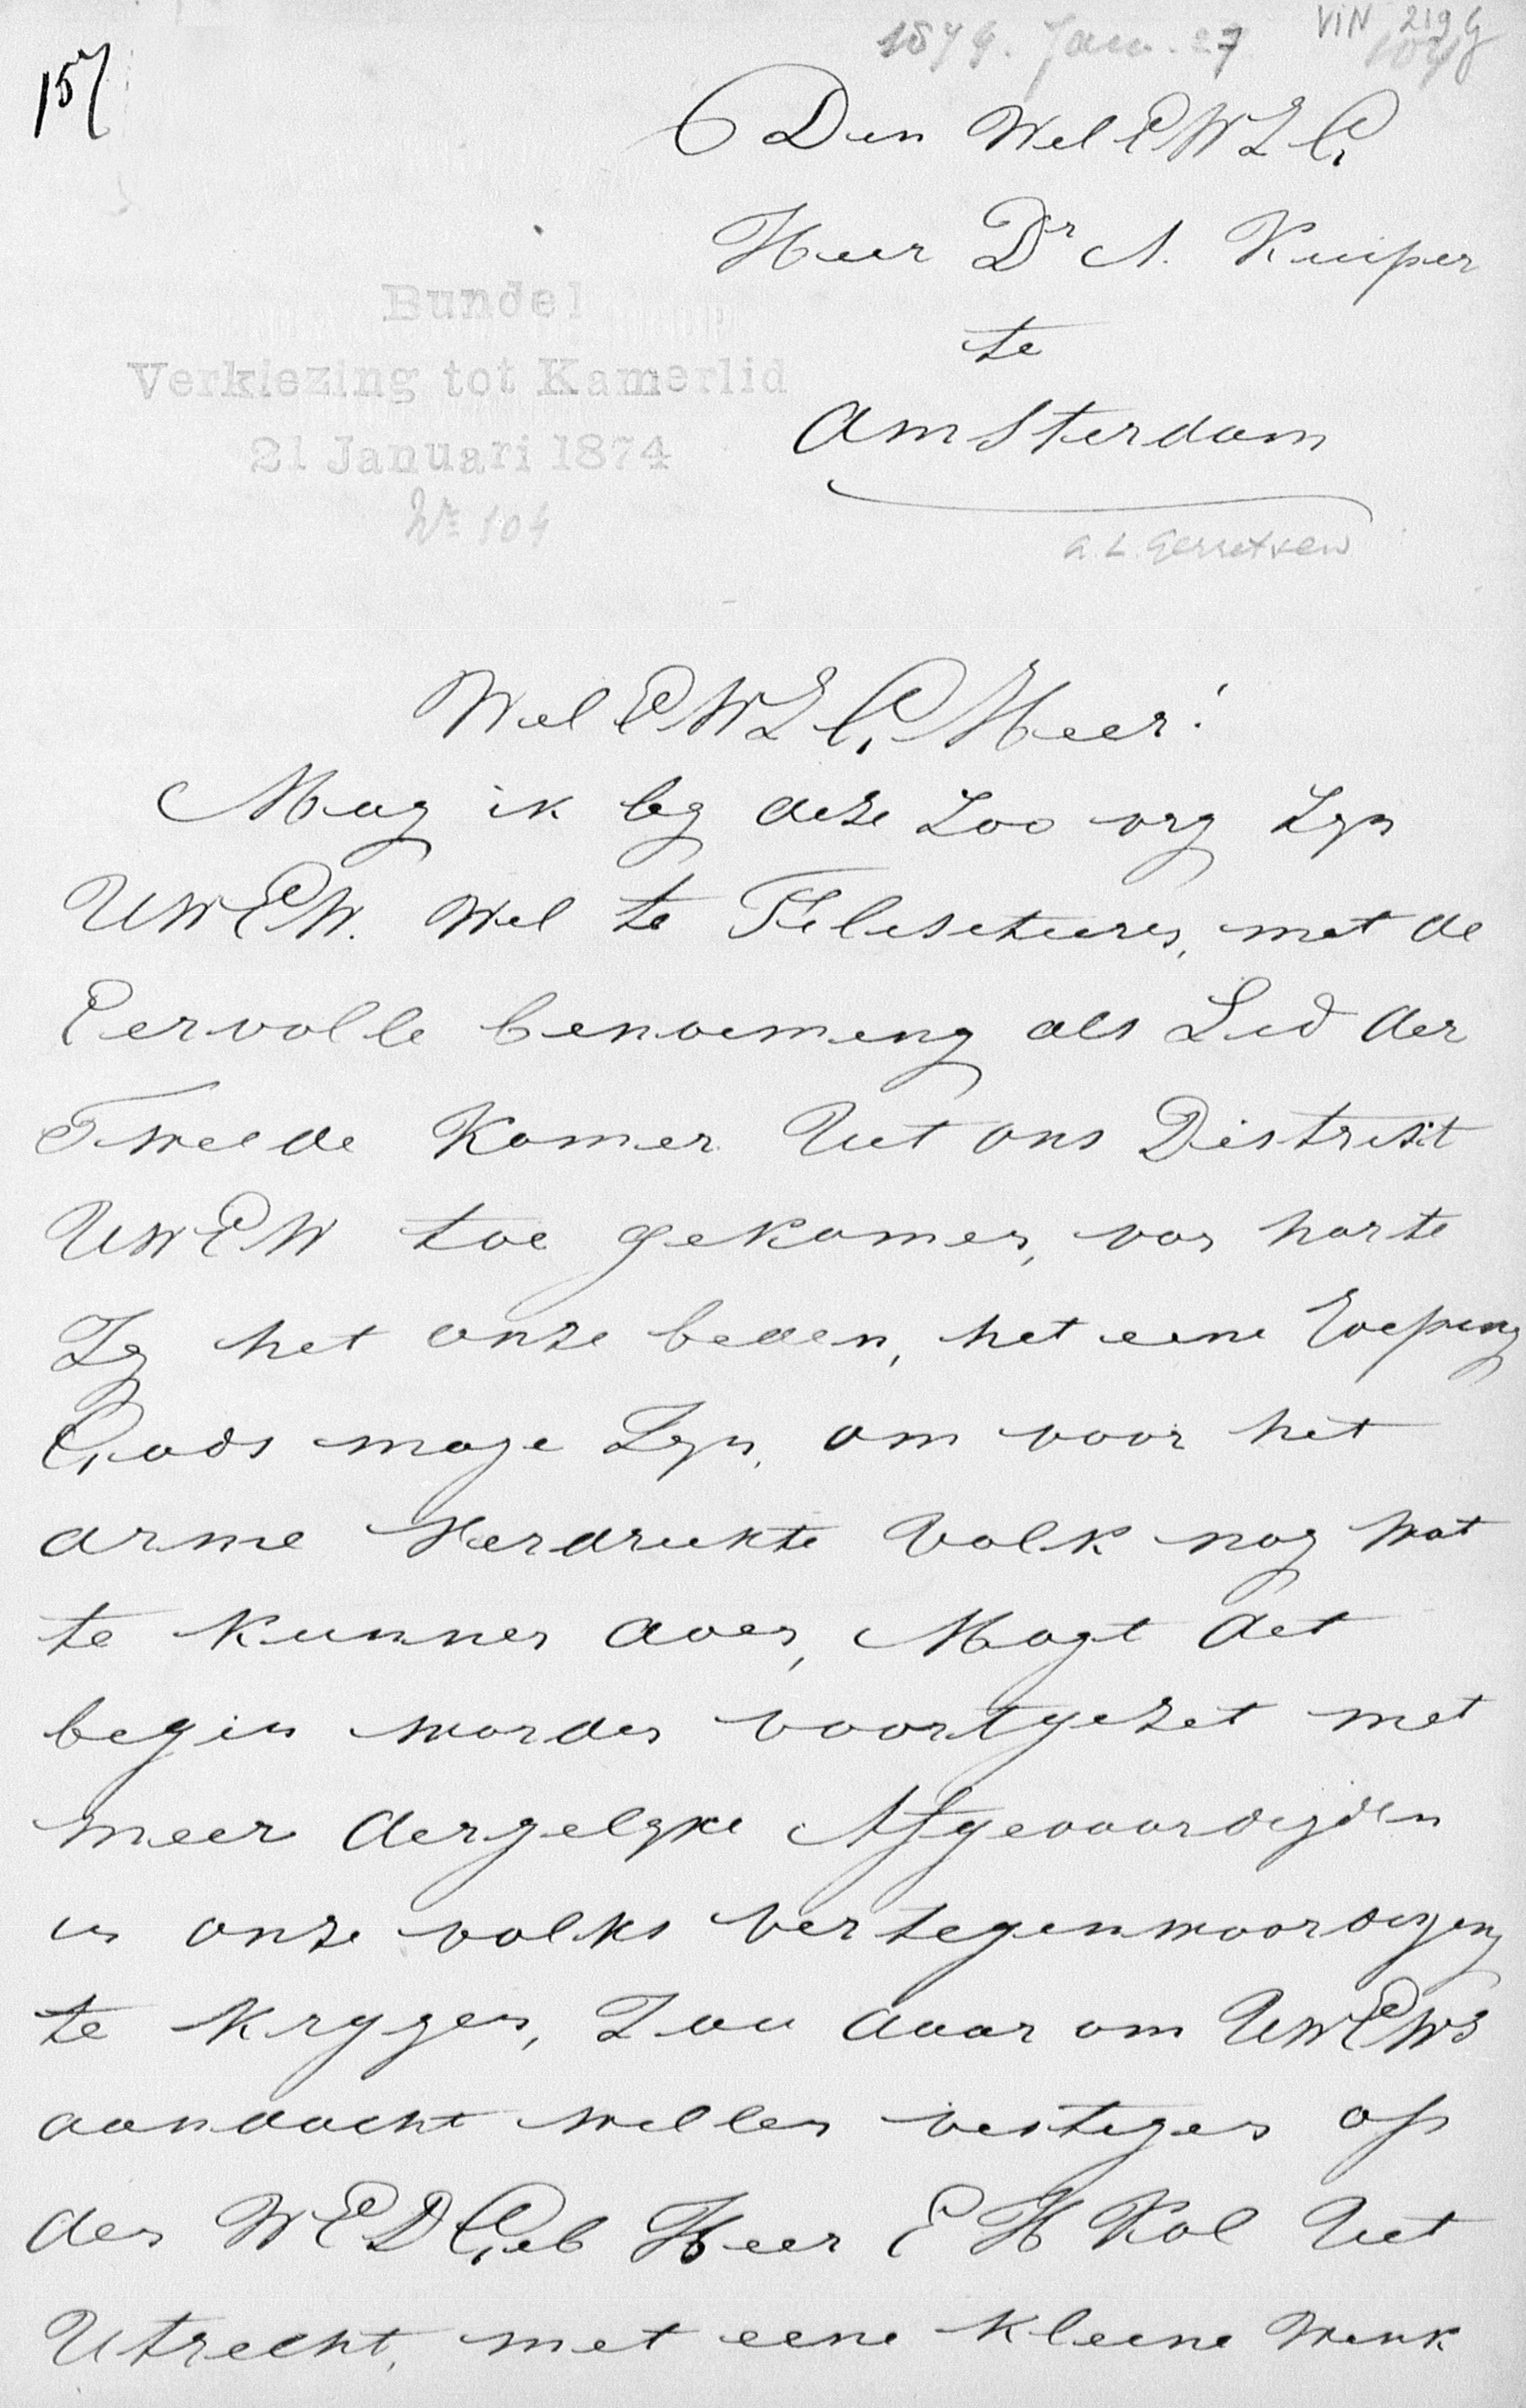 1874. Jan. 27
VIN 219 G
157
Den Wel E W Z G
Heer Dr A. Kuiper
te
Amsterdam
Bundel
Verkiezing tot Kamerlid
21 Januari 1874
Nr 104
G. L. Gerretsen
Wel E W Z G Heer!
Mag ik by deze Zoo vry Zyn
UWEW. Wel te Feliseteeren, met de
Eervolle benoeming als Lid der
Tweede Kamer Uit ons Distrikt
UWEW toe gekomen, van harte
Zy het onze beden, het eene roeping
Gods moge Zyn, om voor het
arme Verdrukte Volk nog wat
te Kunnen doen, Mogt dit
begin worden voortgezet met
meer dergelyke Afgevaardigden
in onze volks vertegenwoordiging
te krygen, Zou daar om UWEWs
aandacht willen vestigen op
den W E D Geb Heer E H Kol Uit
Utrecht, met eene kleine Wenk